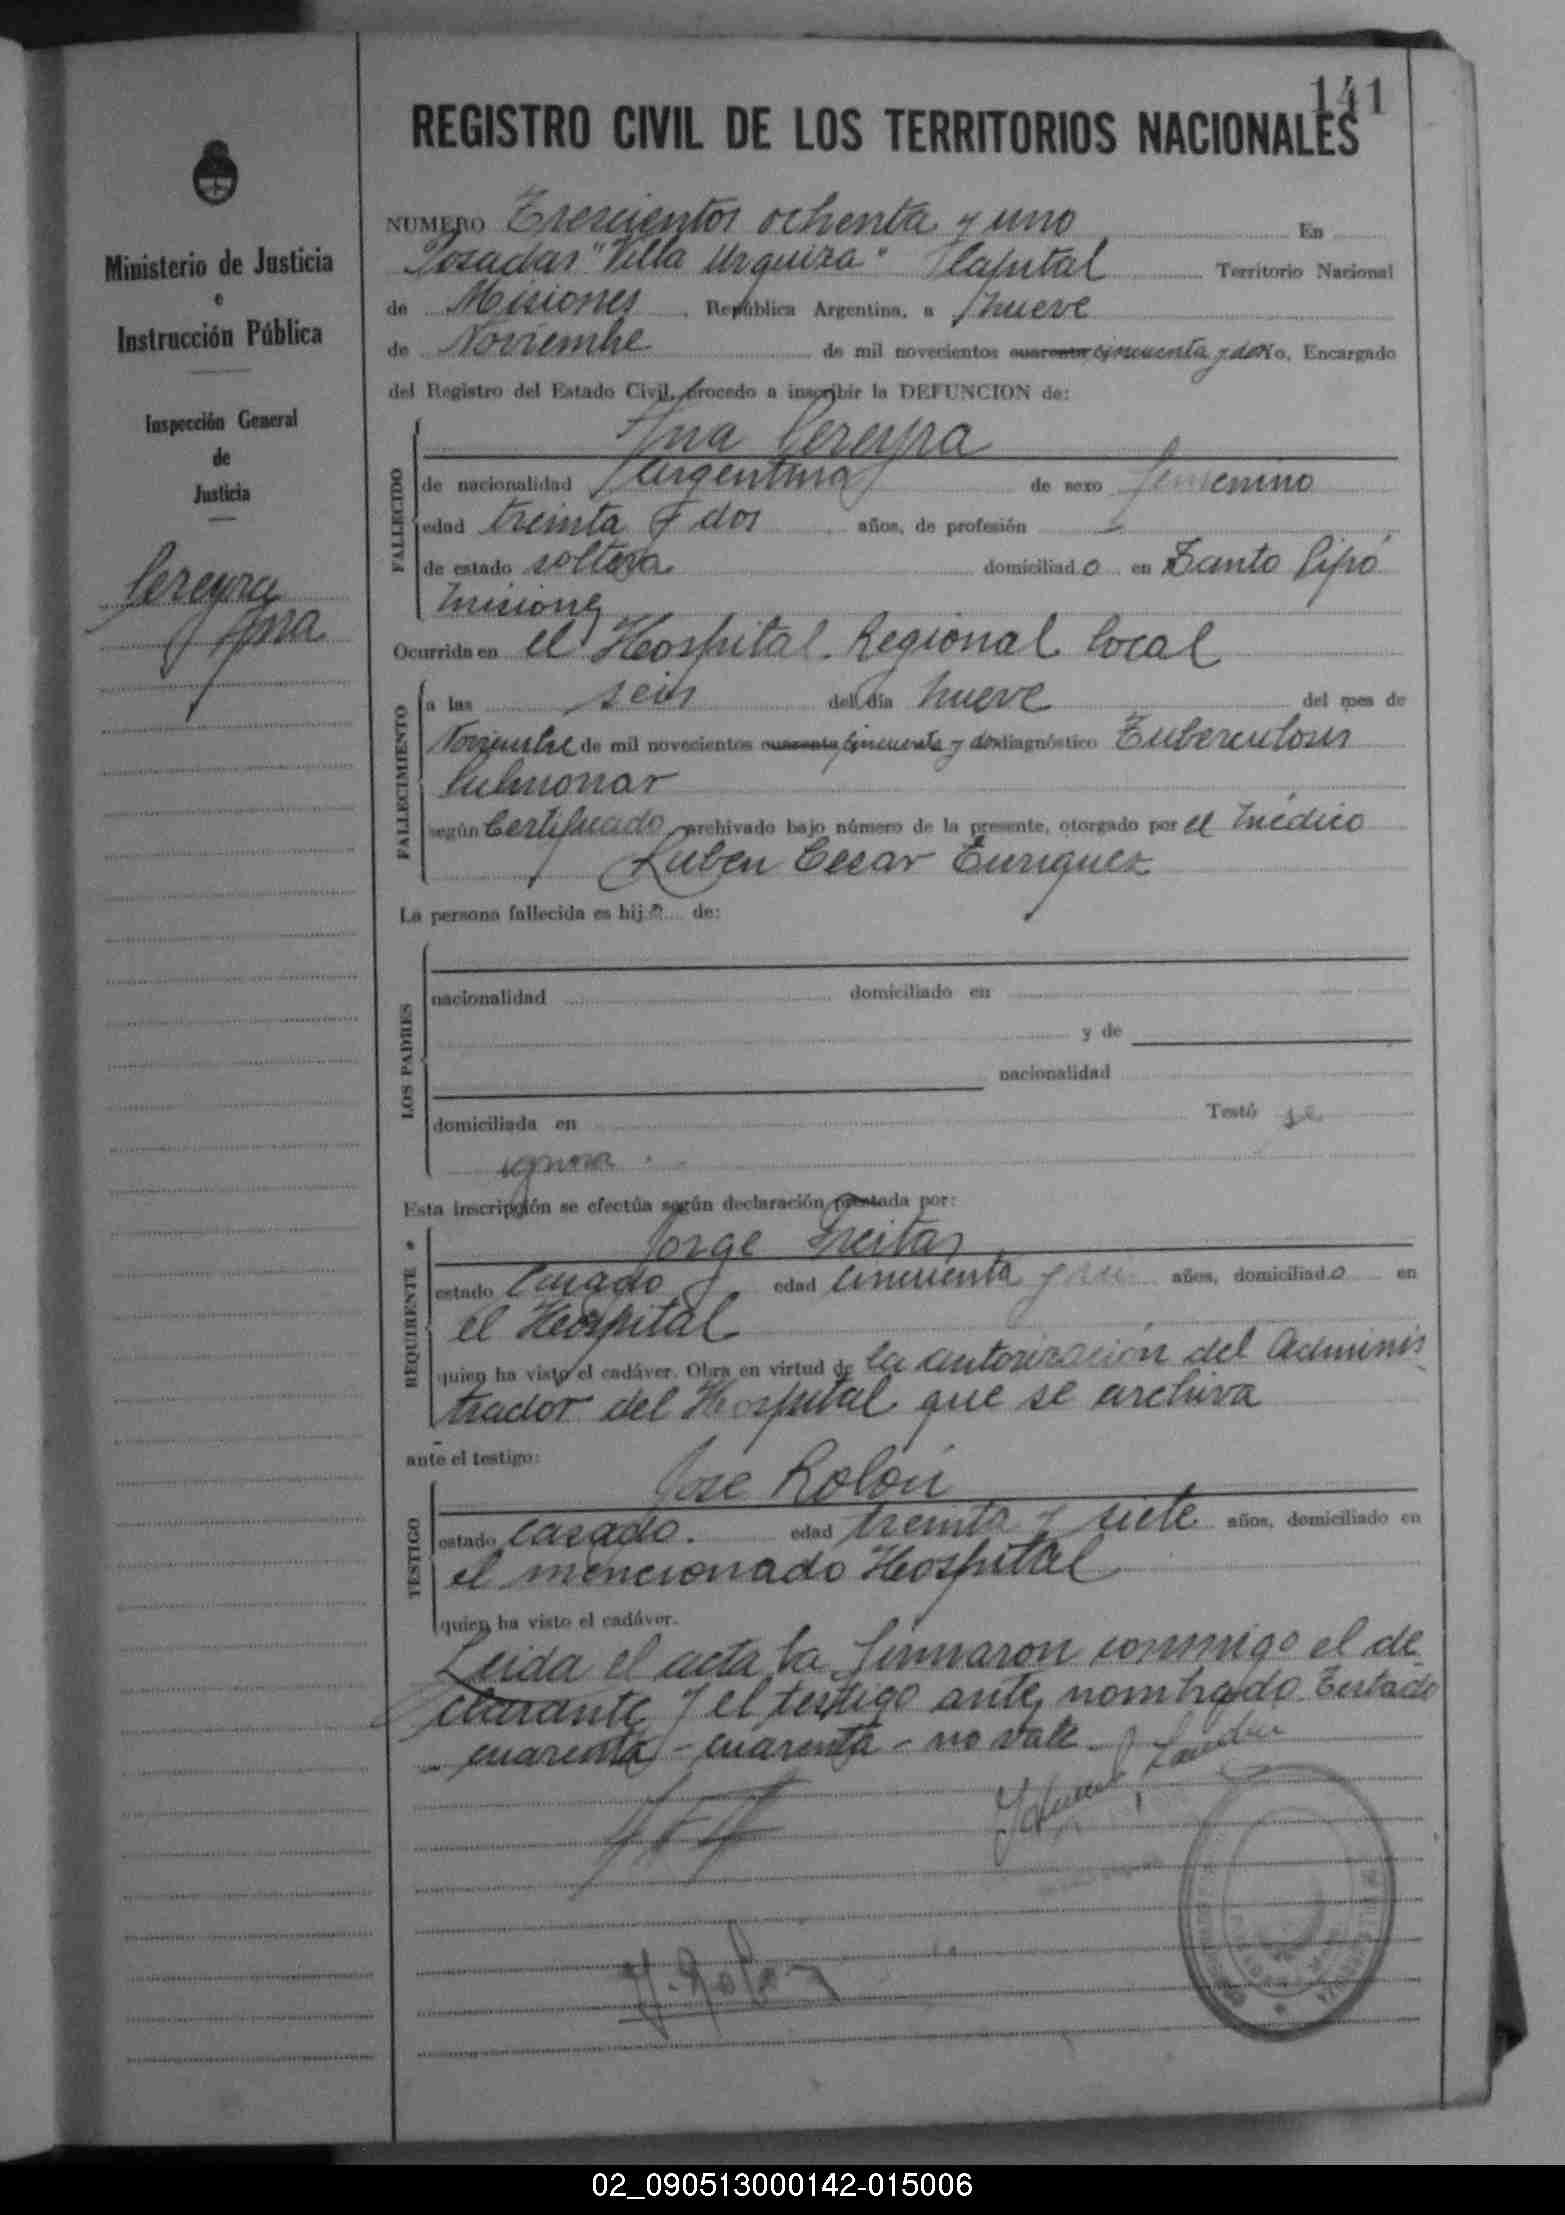 141
REGISTRO CIVIL DE LOS TERRITORIOS NACIONALES
Ministerio de Justicia
e
Instrucción Pública
Inspección General
de
Justicia
Pereyra
Ana
NUMERO Trescientos ochenta y uno En
Posadas "Villa Urquiza" Capital Territorio Nacional
de Misiones, República Argentina, a nueve
de Noviembre de mil novecientos cuarenta cincuenta y dos Yo, Encargado
del Registro del Estado Civil, procedo a inscribir la DEFUNCION de:
FALLECIDO
Ana Pereyra
de nacionalidad Argentina de sexo femenino
edad treinta y dos años, de profesión -
de estado soltera domiciliado en Santo Pipó
Misiones
Ocurrida en el Hospital Regional local
FALLECIMIENTO
a las seis del día nueve del mes de
Noviembre de mil novecientos cuarenta cincuenta y dos diagnóstico Tuberculosis
Pulmonar
según Certificado archivado bajo número de la presente, otorgado por el Médico
Ruben Cesar Enriquez
La persona fallecida es hija de:
LOS PADRES
nacionalidad domiciliado en
y de
nacionalidad
domiciliada en Testó se
ignora.
Esta inscripción se efectúa según declaración prestada por:
REQUIRENTE
Jorge Freitas
estado Casado edad cincuenta y años, domiciliado en
el Hospital
quien ha visto el cadáver. Obra en virtud de la autorización del Adminis
trador del Hospital que se archiva
ante el testigo:
TESTIGO
José Rolón
estado casado. edad treinta y siete años, domiciliado en
el mencionado Hospital
quien ha visto el cadáver.
Leida el acta la firmaron conmigo el de
clarante y el testigo ante nombrado Testado
cuarenta - cuarenta - no vale
J. Rolon
02_090513000142-015006